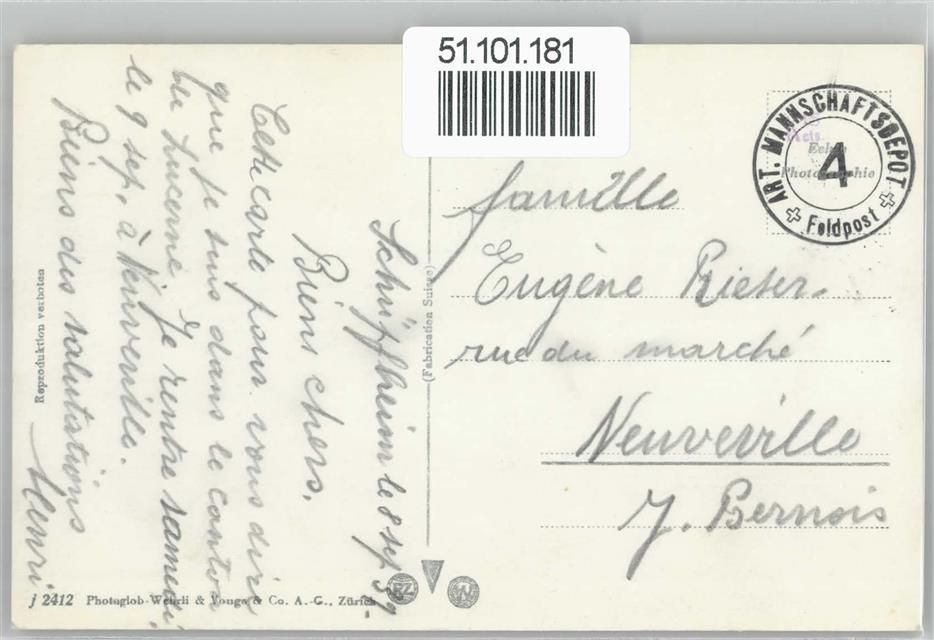 51.101.181
ART. MANNSCHAFTSDEPOT
4
Feldpost
Photographie
Schüpfheim le 8 sep 39.
Biens chers.
Cette carte pour vous dire
que je suis dans le canton
de Lucerne. Je rentre samedi
le 9 sep. à Neuveville.
Biens des salutations
Henri
famille
Eugène Rieter.
rue du marché
Neuveville
J. Bernois
(Fabrication Suisse)
Reproduktion verboten
j 2412 Photoglob-Wehrli & Vouga & Co. A.-G., Zürich
PZ
W